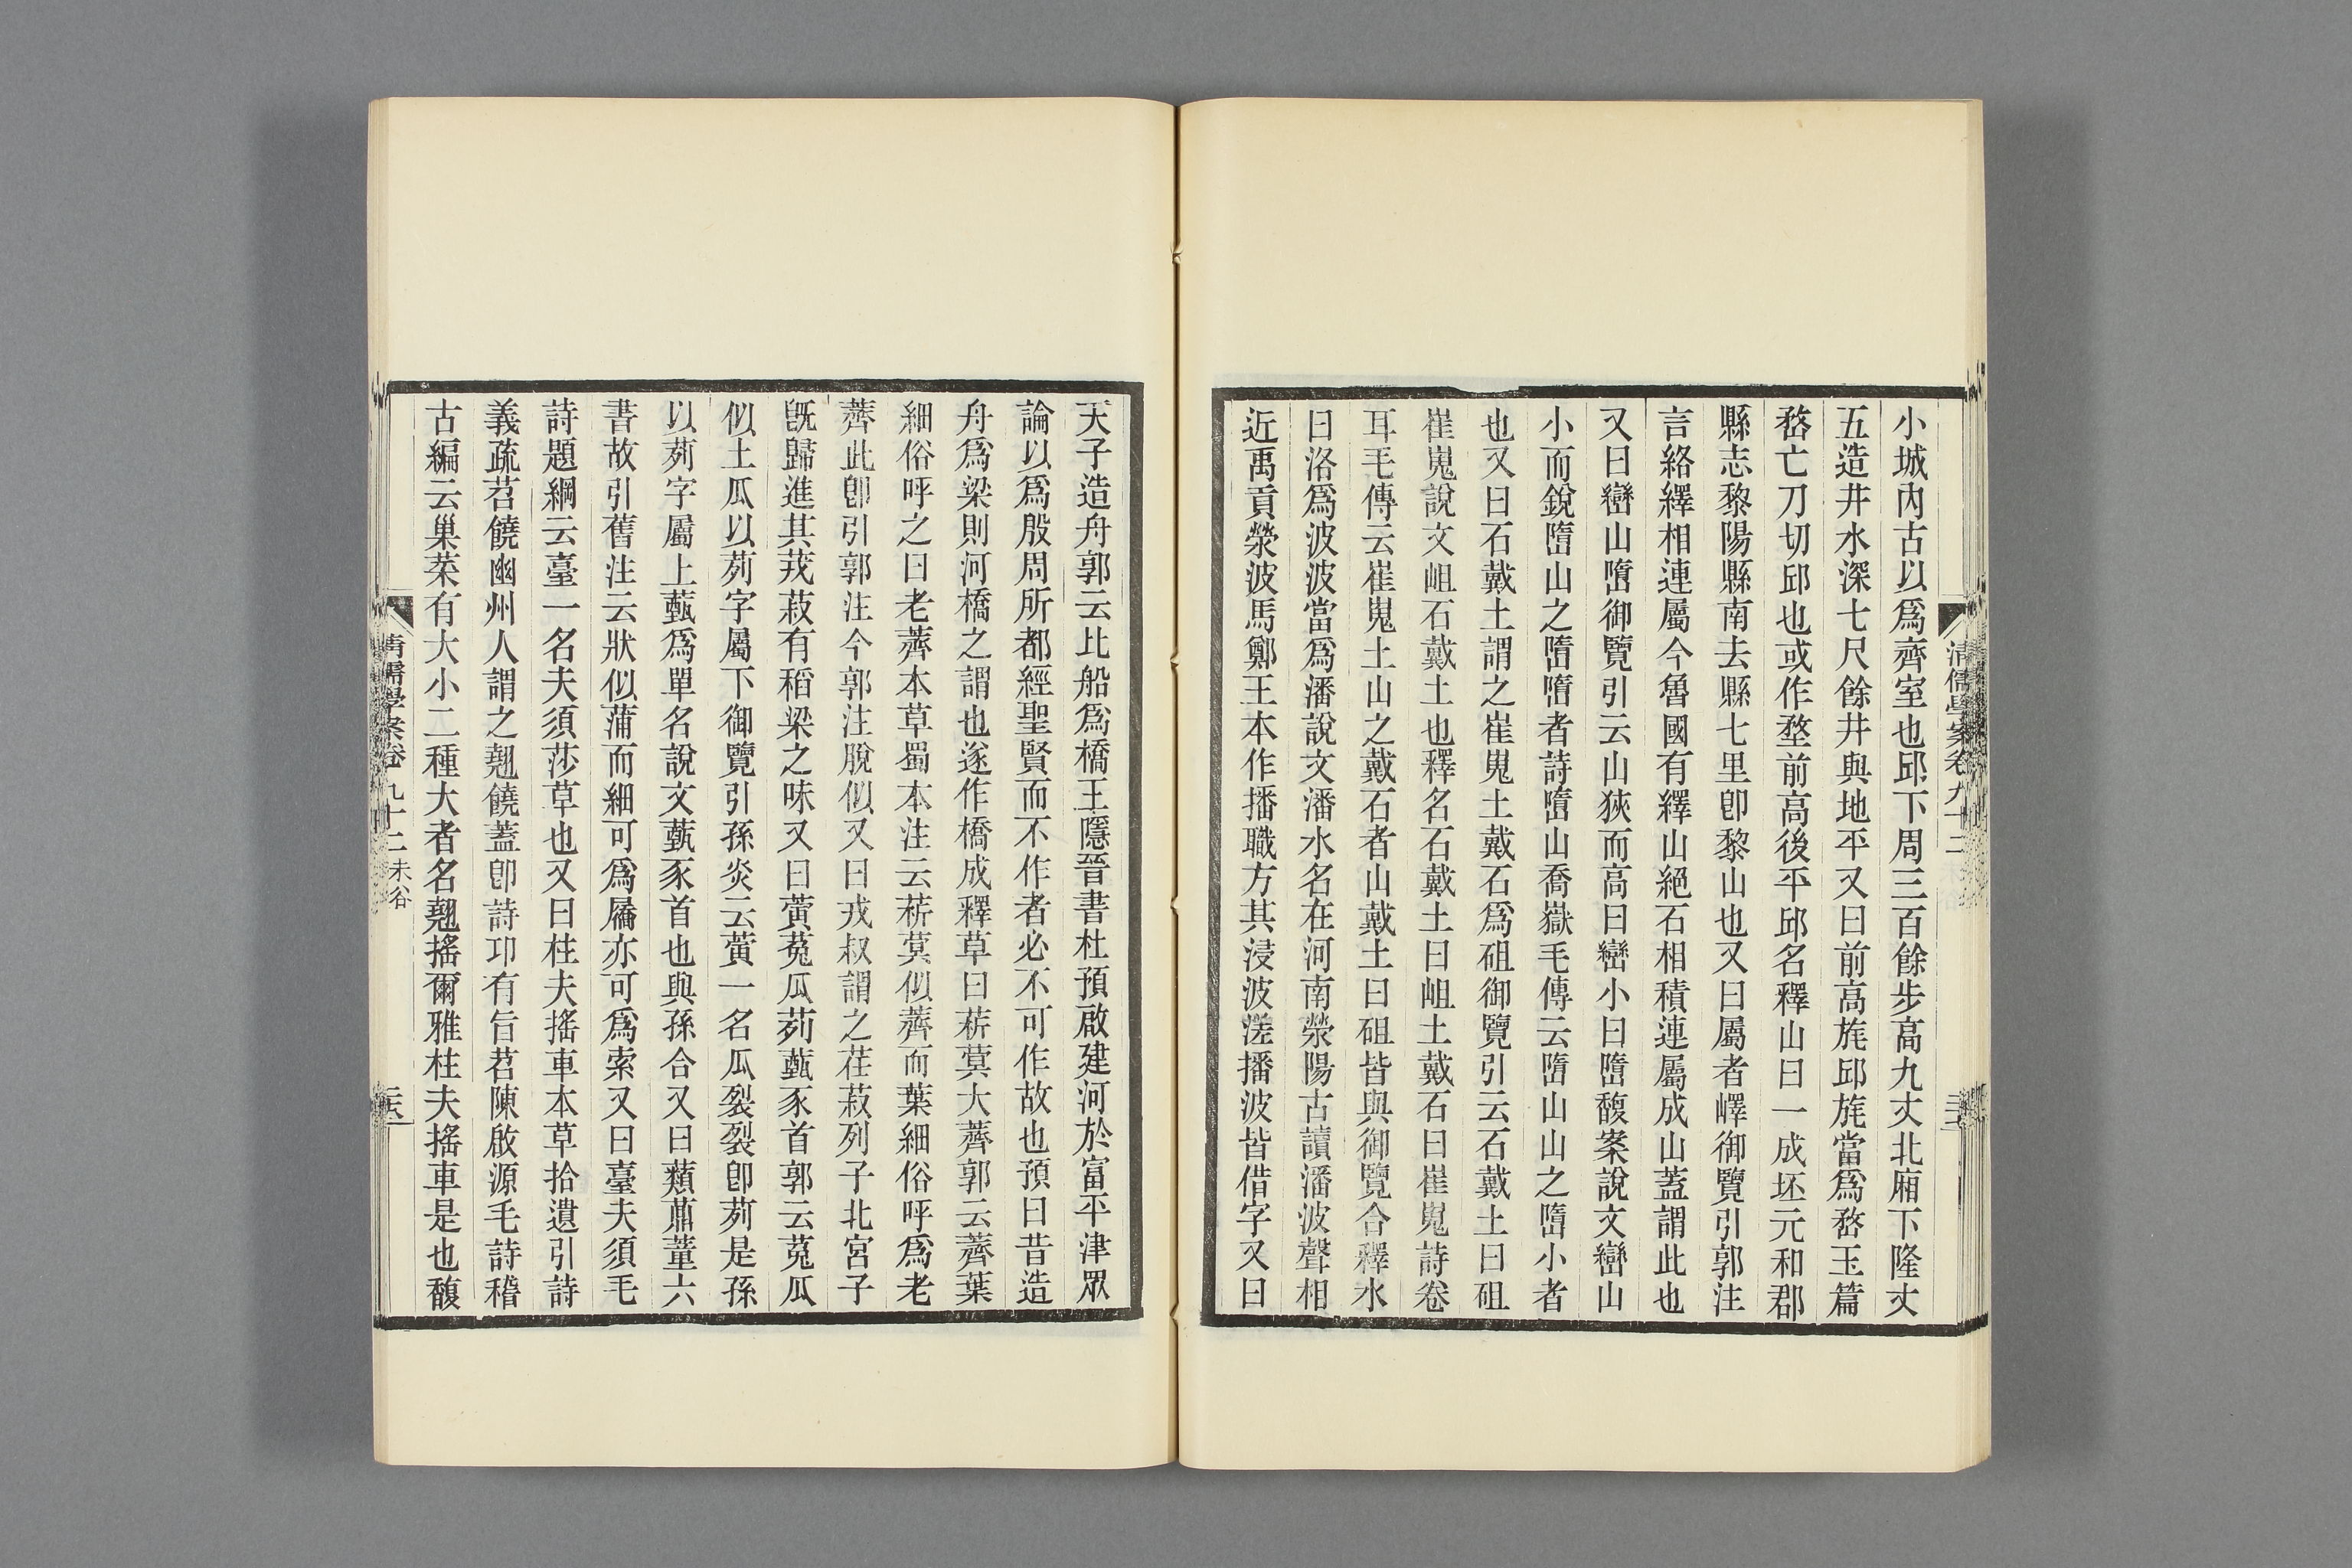 小城內古以爲齊室也邱下周三百餘步高九丈北廂下隆丈
五造井水深七尺餘井與地平又曰前高旄邱旄當爲堥玉篇
堥亡刀切邱也或作堥前高後平邱名釋山曰一成坯元和郡
縣志黎陽縣南去縣七里卽黎山也又曰屬者嶧御覽引郭注
言絡繹相連屬今魯國有繹山絕石相積連屬成山蓋謂此也
又曰巒山墮御覽引云山狹而高曰巒小曰墮馥案說文巒山
小而銳墮山之墮墮者詩墮山喬嶽毛傳云墮山山之墮小者
也又曰石戴土謂之崔嵬土戴石爲砠御覽引云石戴土曰砠
崔嵬說文岨石戴土也釋名石戴土曰岨土戴石曰崔嵬詩卷
耳毛傳云崔嵬土山之戴石者山戴土曰砠皆與御覽合釋水
曰洛爲波波當爲潘說文潘水名在河南滎陽古讀潘波聲相
近禹貢滎波馬鄭王本作播職方其浸波溠播波皆借字又曰
天子造舟郭云比船爲橋王隱晉書杜預啟建河於富平津眾
論以爲殷周所都經聖賢而不作者必不可作故也預曰昔造
舟爲梁則河橋之謂也遂作橋成釋草曰菥蓂大薺郭云薺葉
細俗呼之曰老薺本草蜀本注云菥蓂似薺而葉細俗呼爲老
薺此卽引郭注今郭注脫似又曰戎叔謂之荏菽列子北宮子
旣歸進其茙菽有稻粱之味又曰蕡菟瓜茢薽豕首郭云菟瓜
似土瓜以茢字屬下御覽引孫炎云蕡一名瓜裂裂卽茢是孫
以茢字屬上薽爲單名說文薽豕首也與孫合又曰蘱薡蕫六
書故引舊注云狀似蒲而細可爲屩亦可爲索又曰臺夫須毛
詩題綱云臺一名夫須莎草也又曰柱夫搖車本草拾遺引詩
義疏苕饒幽州人謂之翹饒蓋卽詩卭有旨苕陳啟源毛詩稽
古編云巢菜有大小二種大者名翹搖爾雅柱夫搖車是也馥
清儒學案卷九十二 未谷